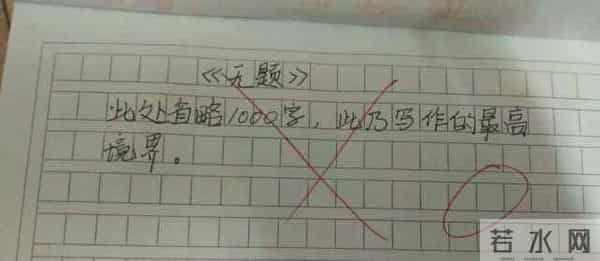 《无题》
此处省略1000字，此乃写作的最高
境界。
若水网